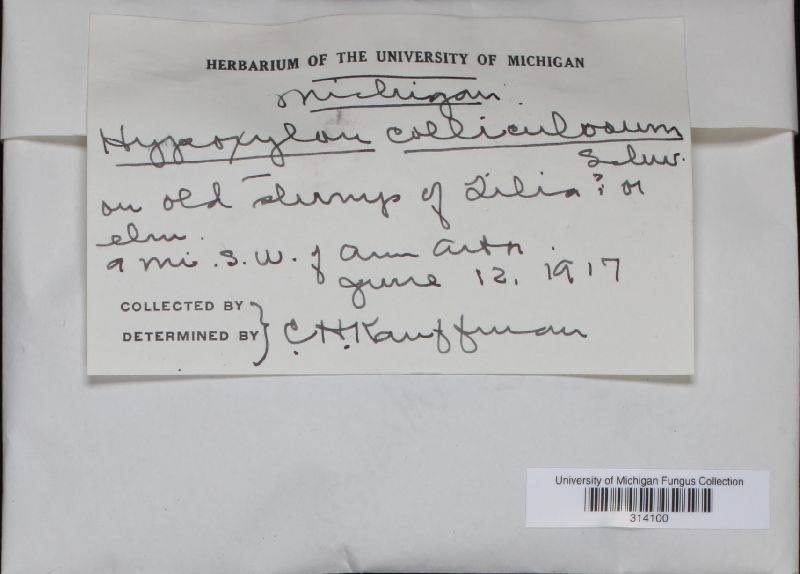 HERBARIUM OF THE UNIVERSITY OF MICHIGAN
Michigan.
Hypoxylon colliculosum
Schw.
on old stump of Tilia ? or
elm.
9 mi. S.W. of Ann Arbor.
June 12, 1917
COLLECTED BY
DETERMINED BY } C.H. Kauffman
University of Michigan Fungus Collection
314100